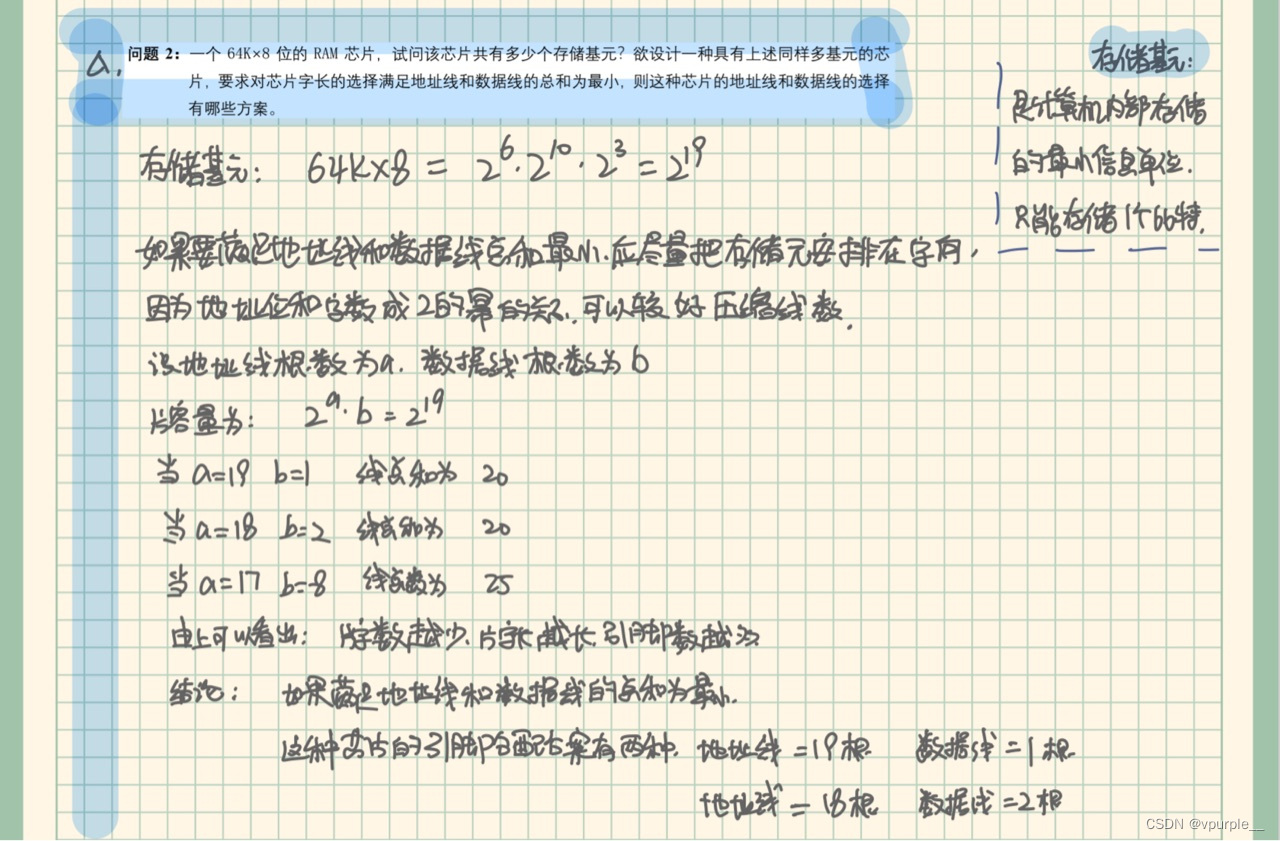 a.
问题 2：一个 64K×8 位的 RAM 芯片，试问该芯片共有多少个存储基元？欲设计一种具有上述同样多基元的芯
片，要求对芯片字长的选择满足地址线和数据线的总和为最小，则这种芯片的地址线和数据线的选择
有哪些方案。
存储基元：
是计算机内部存储
的最小信息单位.
只能存储1个bb特.
存储基元： 64K×8 = 2^6·2^10·2^3 = 2^19
如果要满足地址线和数据线总和最小.应尽量把存储元安排在字向，
因为地址位和字数成2的幂的关系.可以较好压缩线数.
设地址线根数为a. 数据线根数为b
片容量为： 2^a·b = 2^19
当 a=19 b=1 线总和为 20
当 a=18 b=2 线总和为 20
当 a=17 b=8 线总数为 25
由上可以看出： 片字数越少.片字长越长.引脚数越多
结论： 如果满足地址线和数据线的总和为最小.
这种芯片的引脚分配方案有两种. 地址线 = 19根 数据线 = 1根
地址线 = 18根 数据线 = 2根
CSDN @vpurple__